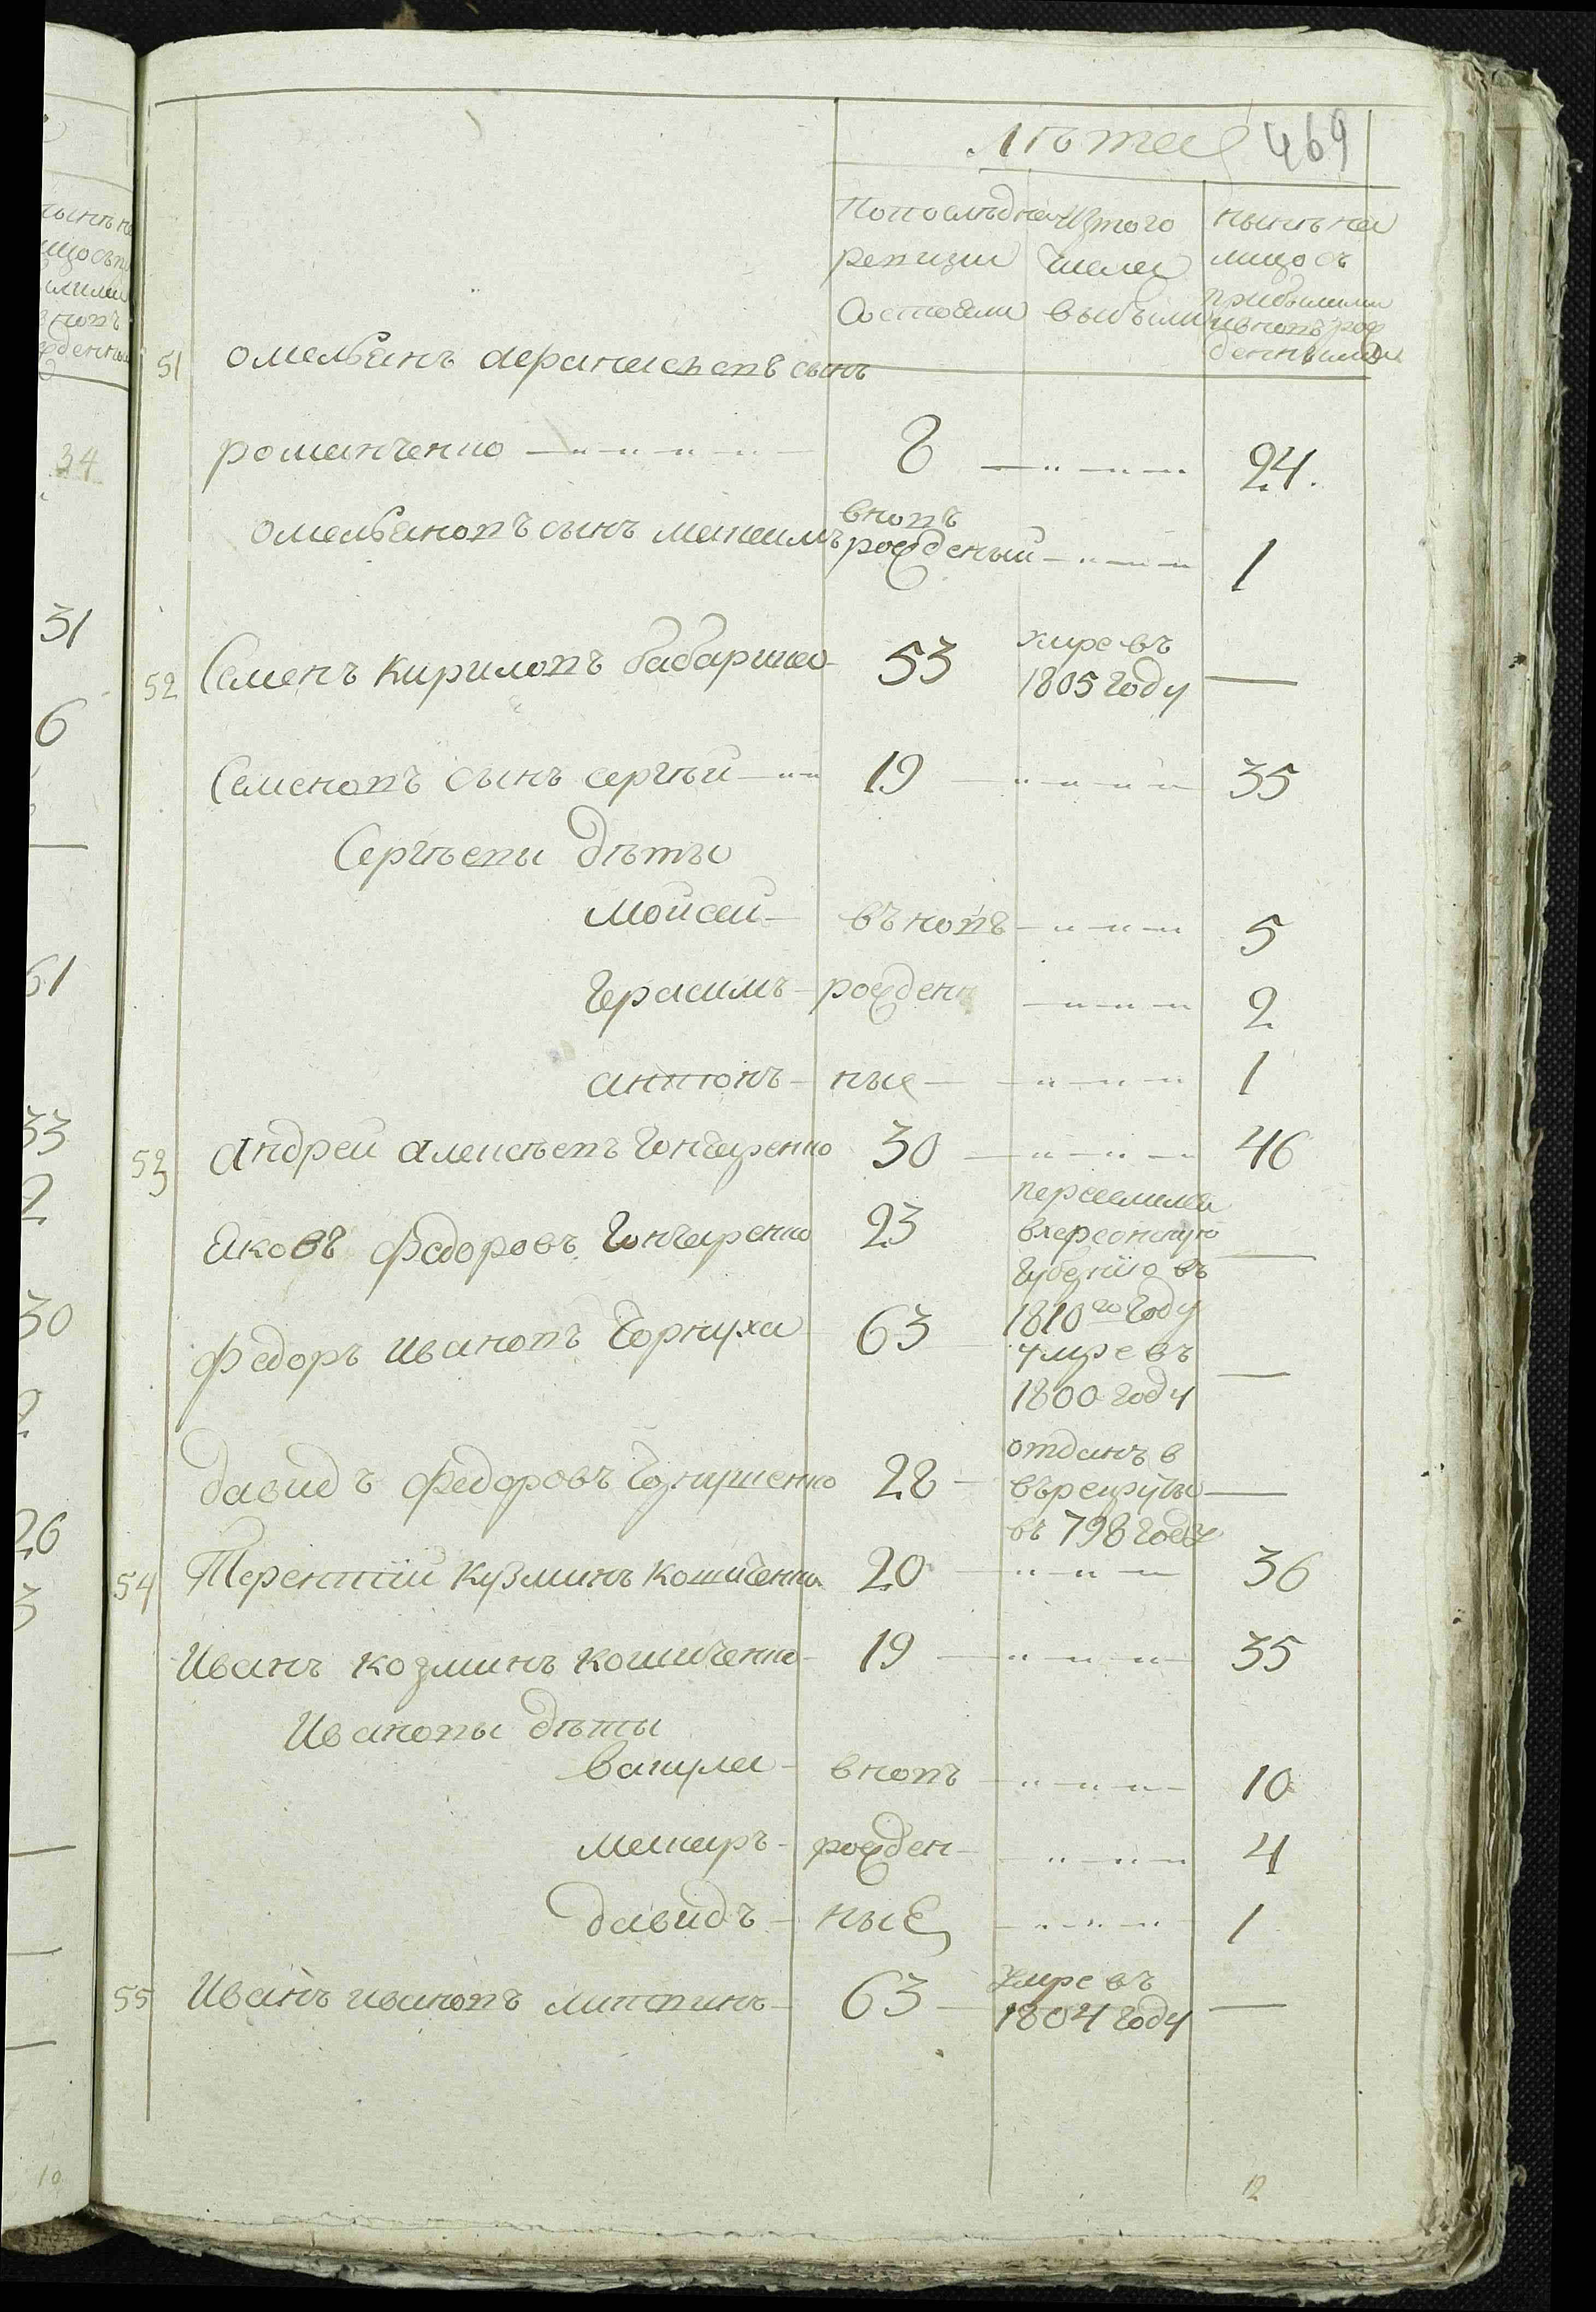 Лѣта 469
По последней Изтого нынѣ на
ревизии числа лицо съ
Состояли выбыли прибылыми
и вновь рож
денными
51 омельянъ афанасьевъ сынъ
романченко 8 24.
омельяновъ сынъ максимъ вновь рожденый 1
52 Семенъ кириловъ бабарика 53 умре въ 1805 году —
Семеновъ сынъ сергѣй 19 35
Сергѣевы дѣты
Мойсей въ новь 5
Герасимъ рожден 2
антонъ ные 1
53 Андрей алексѣевъ Гончаренко 30 46
Яковъ Федоровъ Гончаренко 23 —
в херсонскую
Губернию въ
1810го Году
Федоръ Ивановъ Горкуха 63 умре въ 1800 году —
Давидъ Федоровъ 28 отданъ в
въ рекруты —
въ 798 годе
54 Терентий Кузминъ Кошиченко 20 36
Иванъ козминъ кошиченко 19 35
Ивановы дѣты
вакула вновь 10
макаръ рожден 4
давидъ ные 1
55 Иванъ ивановъ литвинъ 63 умре въ 1804 году —
12
34
31
6
61
33
2
30
2
26
3
10